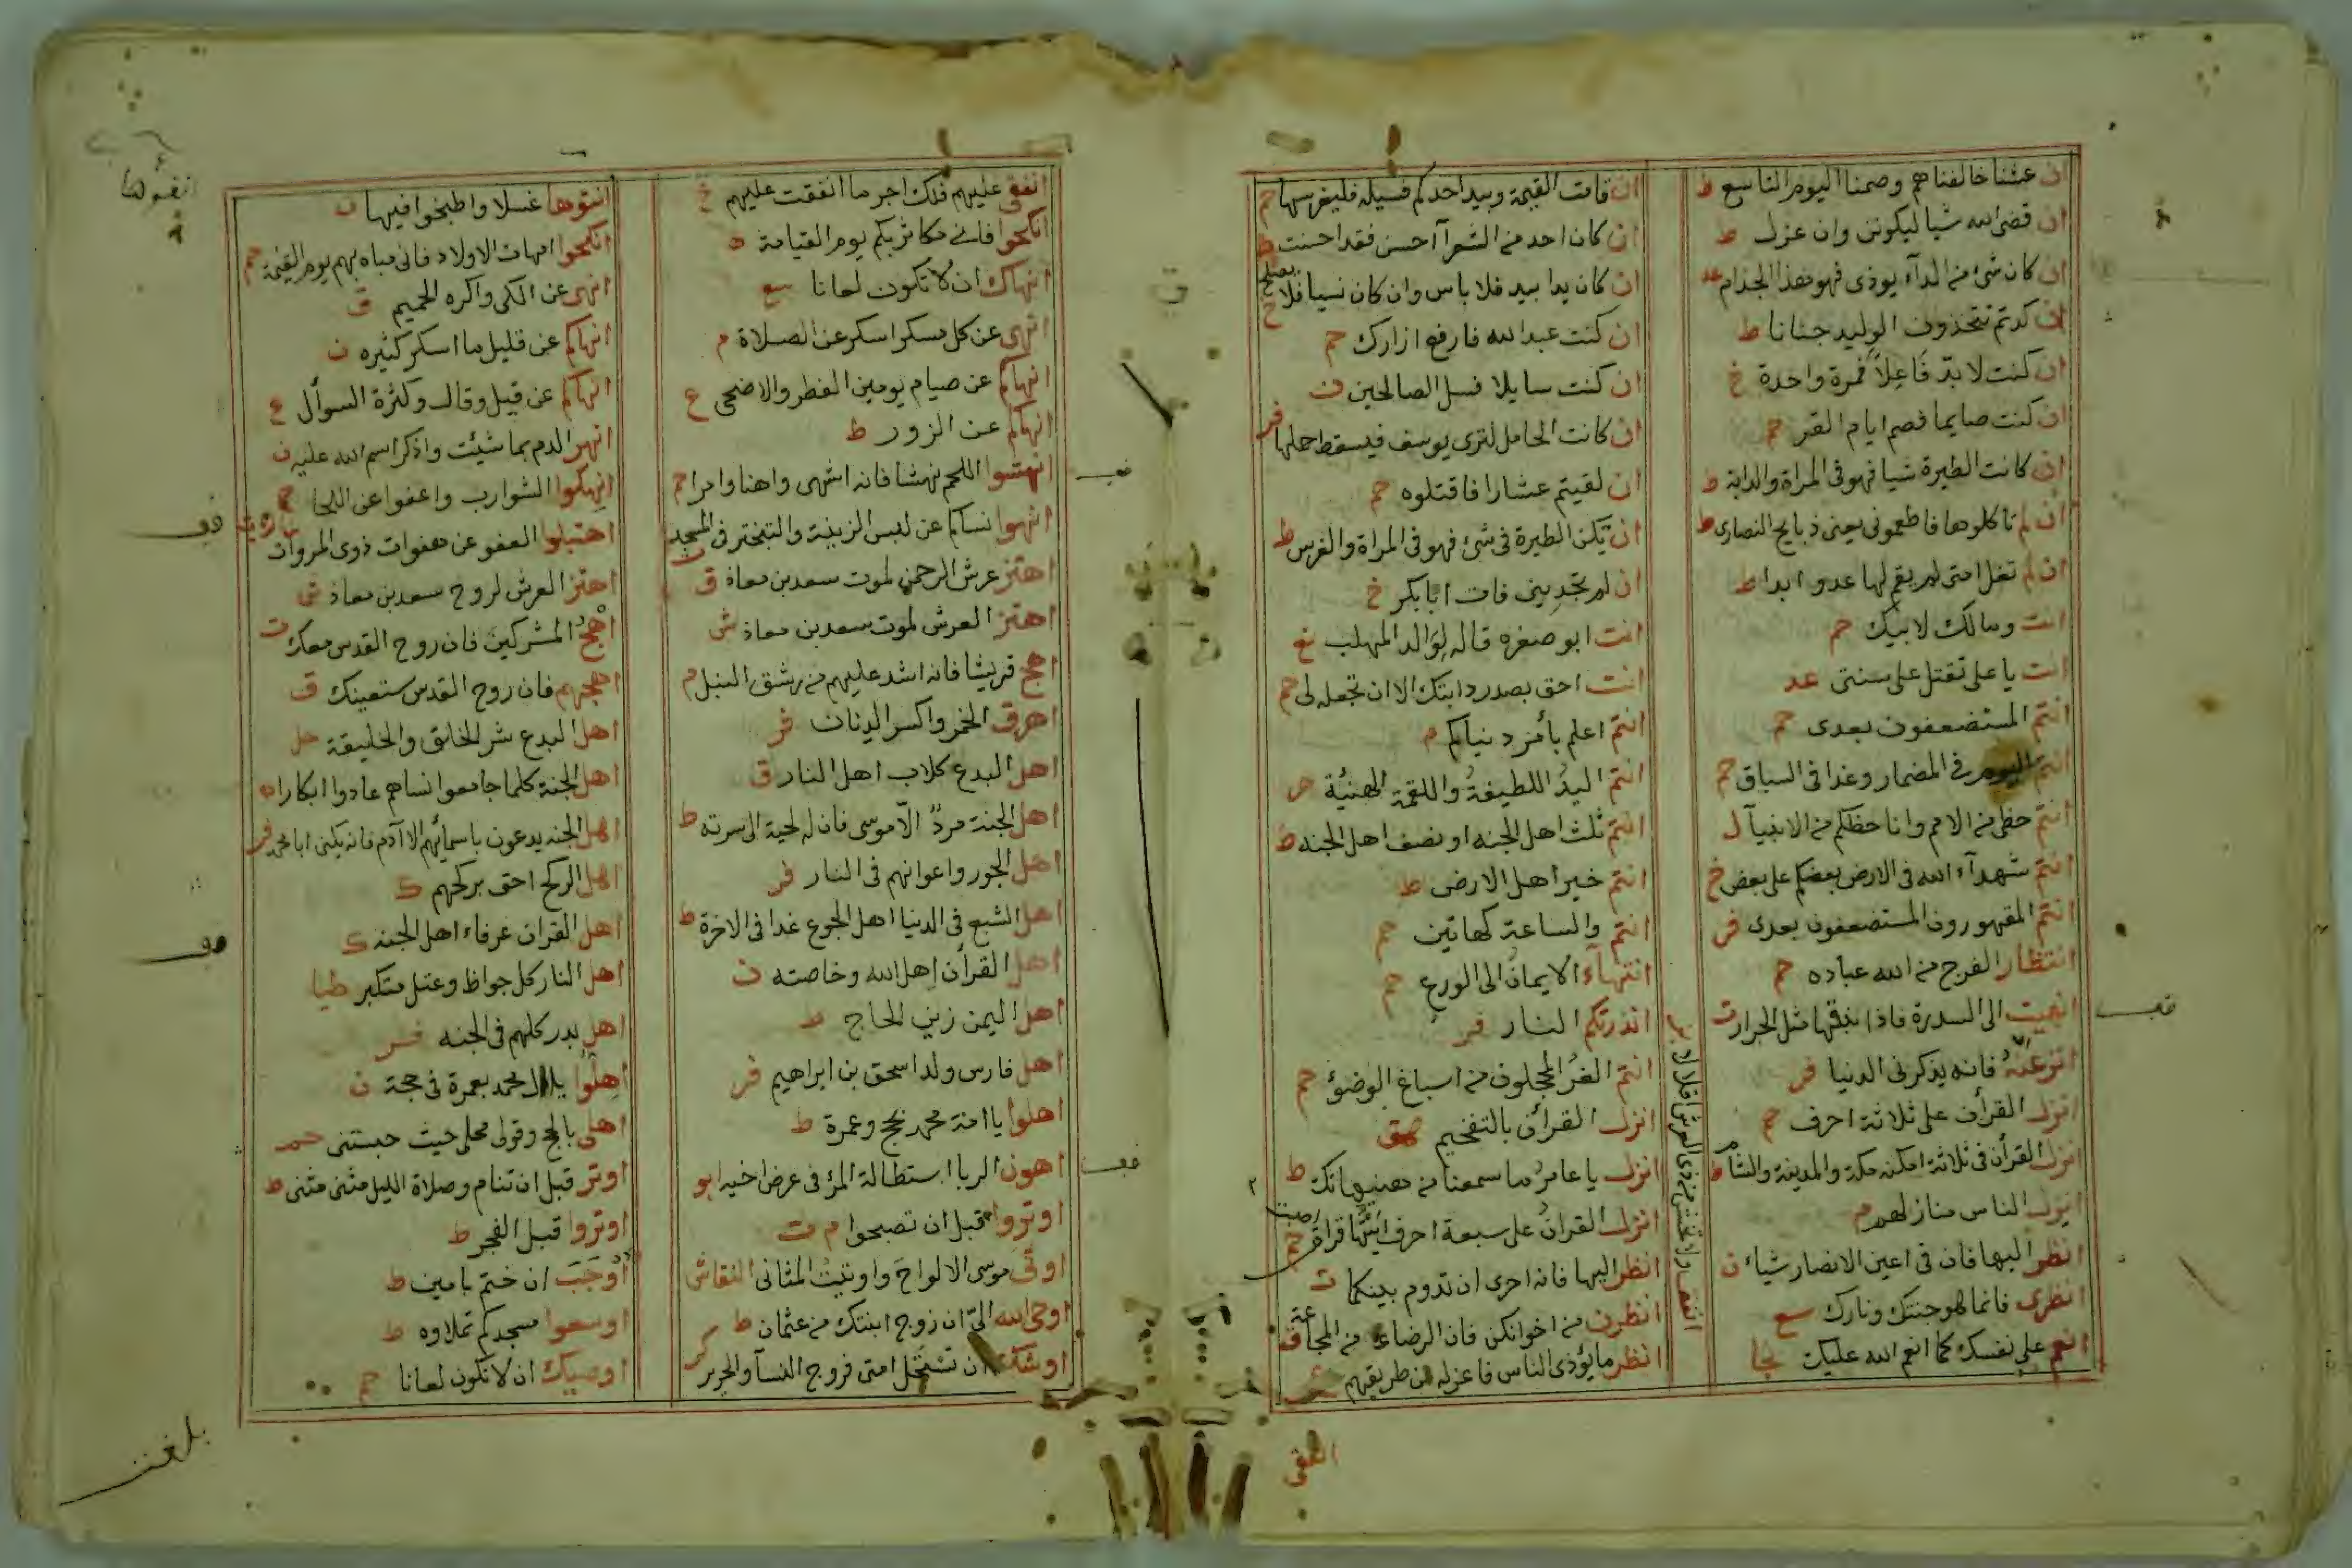 ان عشنا خالفناهم وصمنا اليوم التاسع ط
ان قضى الله شيا ليكونن وان عزل ط
ان كان شئ من الدآء يوذى فهو هذا الجذام عد
ان كنتم تتخذون الوليد حنانا ط
ان كنت لا بد فاعلا فمرة واحدة خ
ان كنت صايما فصم ايام الغر حم
ان كانت الطيرة شيا فهو فى المراة والدابة ط
ان لم تاكلوها فاطعمونى يعنى ذبايح النصارى ط
ان لم تغل امتى لم يقم لها عدو ابدا ط
انت ومالك لابيك حم
انت يا على تقتل على سنتى عد
انتم المستضعفون بعدى حم
انتم اليوم فى المضمار وغدا فى السباق حم
انتم حظى من الامم وانا حظكم من الانبيآ ل
انتم شهدآء الله فى الارض بعضكم على بعض خ
انتم المقهورون المستضعفون بعدى فر
انتظار الفرج من الله عباده حم
انتهيت الى السدرة فاذا نبقها مثل الجرار ت
انزعيه فانه يذكرنى الدنيا فر
انزل القرأن على ثلاثة احرف حم
انزل القرأن فى ثلاثة امكنه مكة والمدينة والشام ط
انزل الناس منازلهم م
انظر اليها فان فى اعين الانصار شياء ن
انظرى فانما هو جنتك ونارك سع
انعم على نفسك كما انعم الله عليك نجا
ان قامت القيمة وبيد احدكم فسيله فليغرسها حم
ان كان احد من الشعرآ احسن فقد احسنت ط
ان كان يدا بيد فلا باس وان كان نسيا فلا يصلح خ
ان كنت عبد الله فارفع ازارك حم
ان كنت سايلا فسل الصالحين ن
ان كانت الحامل لترى يوسف فيسقط حملها فر
ان لقيتم عشارا فاقتلوه حم
ان تكن الطيرة فى شئ فهو فى المراة والفرس ط
ان لم تجدينى فات ابا بكر خ
انت ابو صفره قاله لوالد المهلب نع
انت احق بصدر دابتك الا ان تجعله لى حم
انتم اعلم بأمر دنياكم م
انتم اليد اللطيفة واللقمة الهنيئة
انتم ثلث اهل الجنه او نصف اهل الجنه ط
انتم خير اهل الارض ط
انتم والساعة كهاتين حم
انتهآء الايمان الى الورع حم
انذرتكم النار فر
انتم الغر المحجلون من اسباغ الوضؤ حم
انزل القرأن بالتفخيم هق
انزل يا عامر فاسمعنا من هنيهاتك ط
انزل القران على سبعة احرف ايتها قرات اصبت حم
انظر اليها فانه احرى ان تدوم بينكما ت
انظرن من اخوانكن فان الرضاعة من المجاعة ق
انظر ما يؤذى الناس فاعزله عن طريقهم
انفق بلال ولا تخش من ذى العرش اقلالا بز
انفقى
انفق عليهم فلك اجر ما انفقت عليهم خ
انكحوا فانى مكاثر بكم يوم القيامة ه
انهاك ان لا تكون لعانا سع
انهى عن كل مسكر اسكر عن الصلاة م
انهاكم عن صيام يومين الفطر والاضحى ع
انهاكم عن الزور ط
انهشوا اللحم نهشا فانه اشهى واهنا وامرا حم
انهوا نساكم عن لبس الزينة والتبختر فى المسجد
اهتز عرش الرحمن لموت سعد بن معاذ ق
اهتز العرش لموت سعد بن معاذ ش
اهج قريشا فانه اشد عليهم من رشق النبل م
اهرق الخمر واكسر الدنان فر
اهل البدع كلاب اهل النار ق
اهل الجنة مرد الا موسى فان له لحية الى سرته ط
اهل الجور واعوانهم فى النار فر
اهل الشبع فى الدنيا اهل الجوع غدا فى الاخرة ط
اهل القرأن اهل الله وخاصته ن
اهل اليمن زين الحاج ط
اهل فارس ولد اسحق بن ابراهيم فر
اهلوا يا امة محمد بحج وعمرة ط
اهون الربا استطالة المرء فى عرض اخيه ابو
اوتروا قبل ان تصبحوا م ت
اوتى موسى الالواح واوتيت المثانى النقاش
اوحى الله الى ان زوج ابنتك من عثمان ط
اوشك ان تستحل امتى فروج النسآ والحرير كر
انفؤها
انقوها غسلا واطبخوا فيها ت
انكحوا امهات الاولاد فانى مباه بهم يوم القيمة حم
انهى عن الكى واكره الحميم ق
انهاكم عن قليل ما اسكر كثيره ن
انهاكم عن قيل وقال وكثرة السوأل ع
انهر الدم بما شيئت واذكر اسم الله عليه ن
انهكوا الشوارب واعفوا عن اللحا خ
اهتبلوا العفو عن هفوات ذوى المروات
اهتز العرش لروح سعد بن معاذ ش
اهج المشركين فان روح القدس معك ت
اهجهم فان روح القدس ستعينك ق
اهل البدع شر الخلق والخليقة حل
اهل الجنة كلما جامعوا نساهم عادوا ابكارا
اهل الجنه يدعون باسمائهم الا آدم فانه يكنى ابا محمد فر
اهل الركح احق بركحهم ك
اهل القران عرفاء اهل الجنه ك
اهل النار كل جواظ وعتل متكبر طيا
اهل بدر كلهم فى الجنه فر
اهلوا يا ال محمد بعمرة فى حجة ن
اهلى بالحج وقولى محلى حيث حبستنى حم
اوتر قبل ان تنام وصلاة الليل مثنى مثنى ط
اوتروا قبل الفجر ط
اوجب ان ختم بامين ط
اوسعوا مسجدكم تملاوه ط
اوصيك ان لا تكون لعانا حم
بلغت